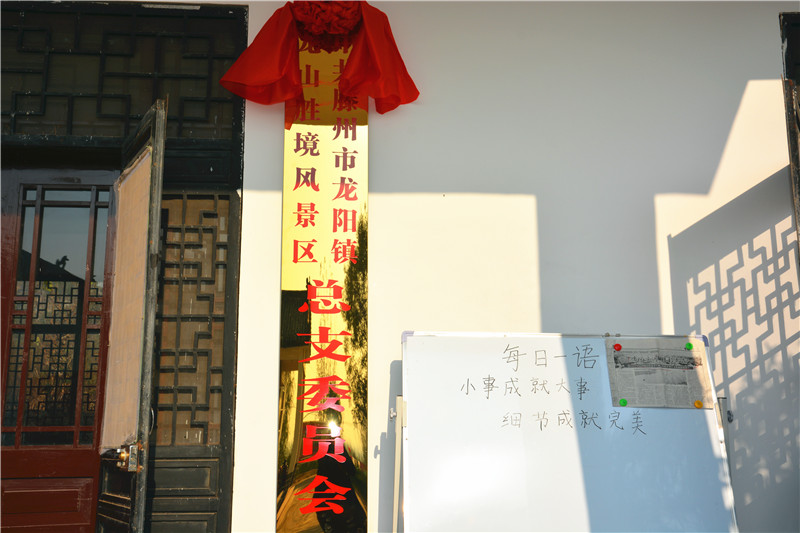 共滕州市龙阳镇
龙山胜境风景区
总支委员会
每日一语
小事成就大事
细节成就完美